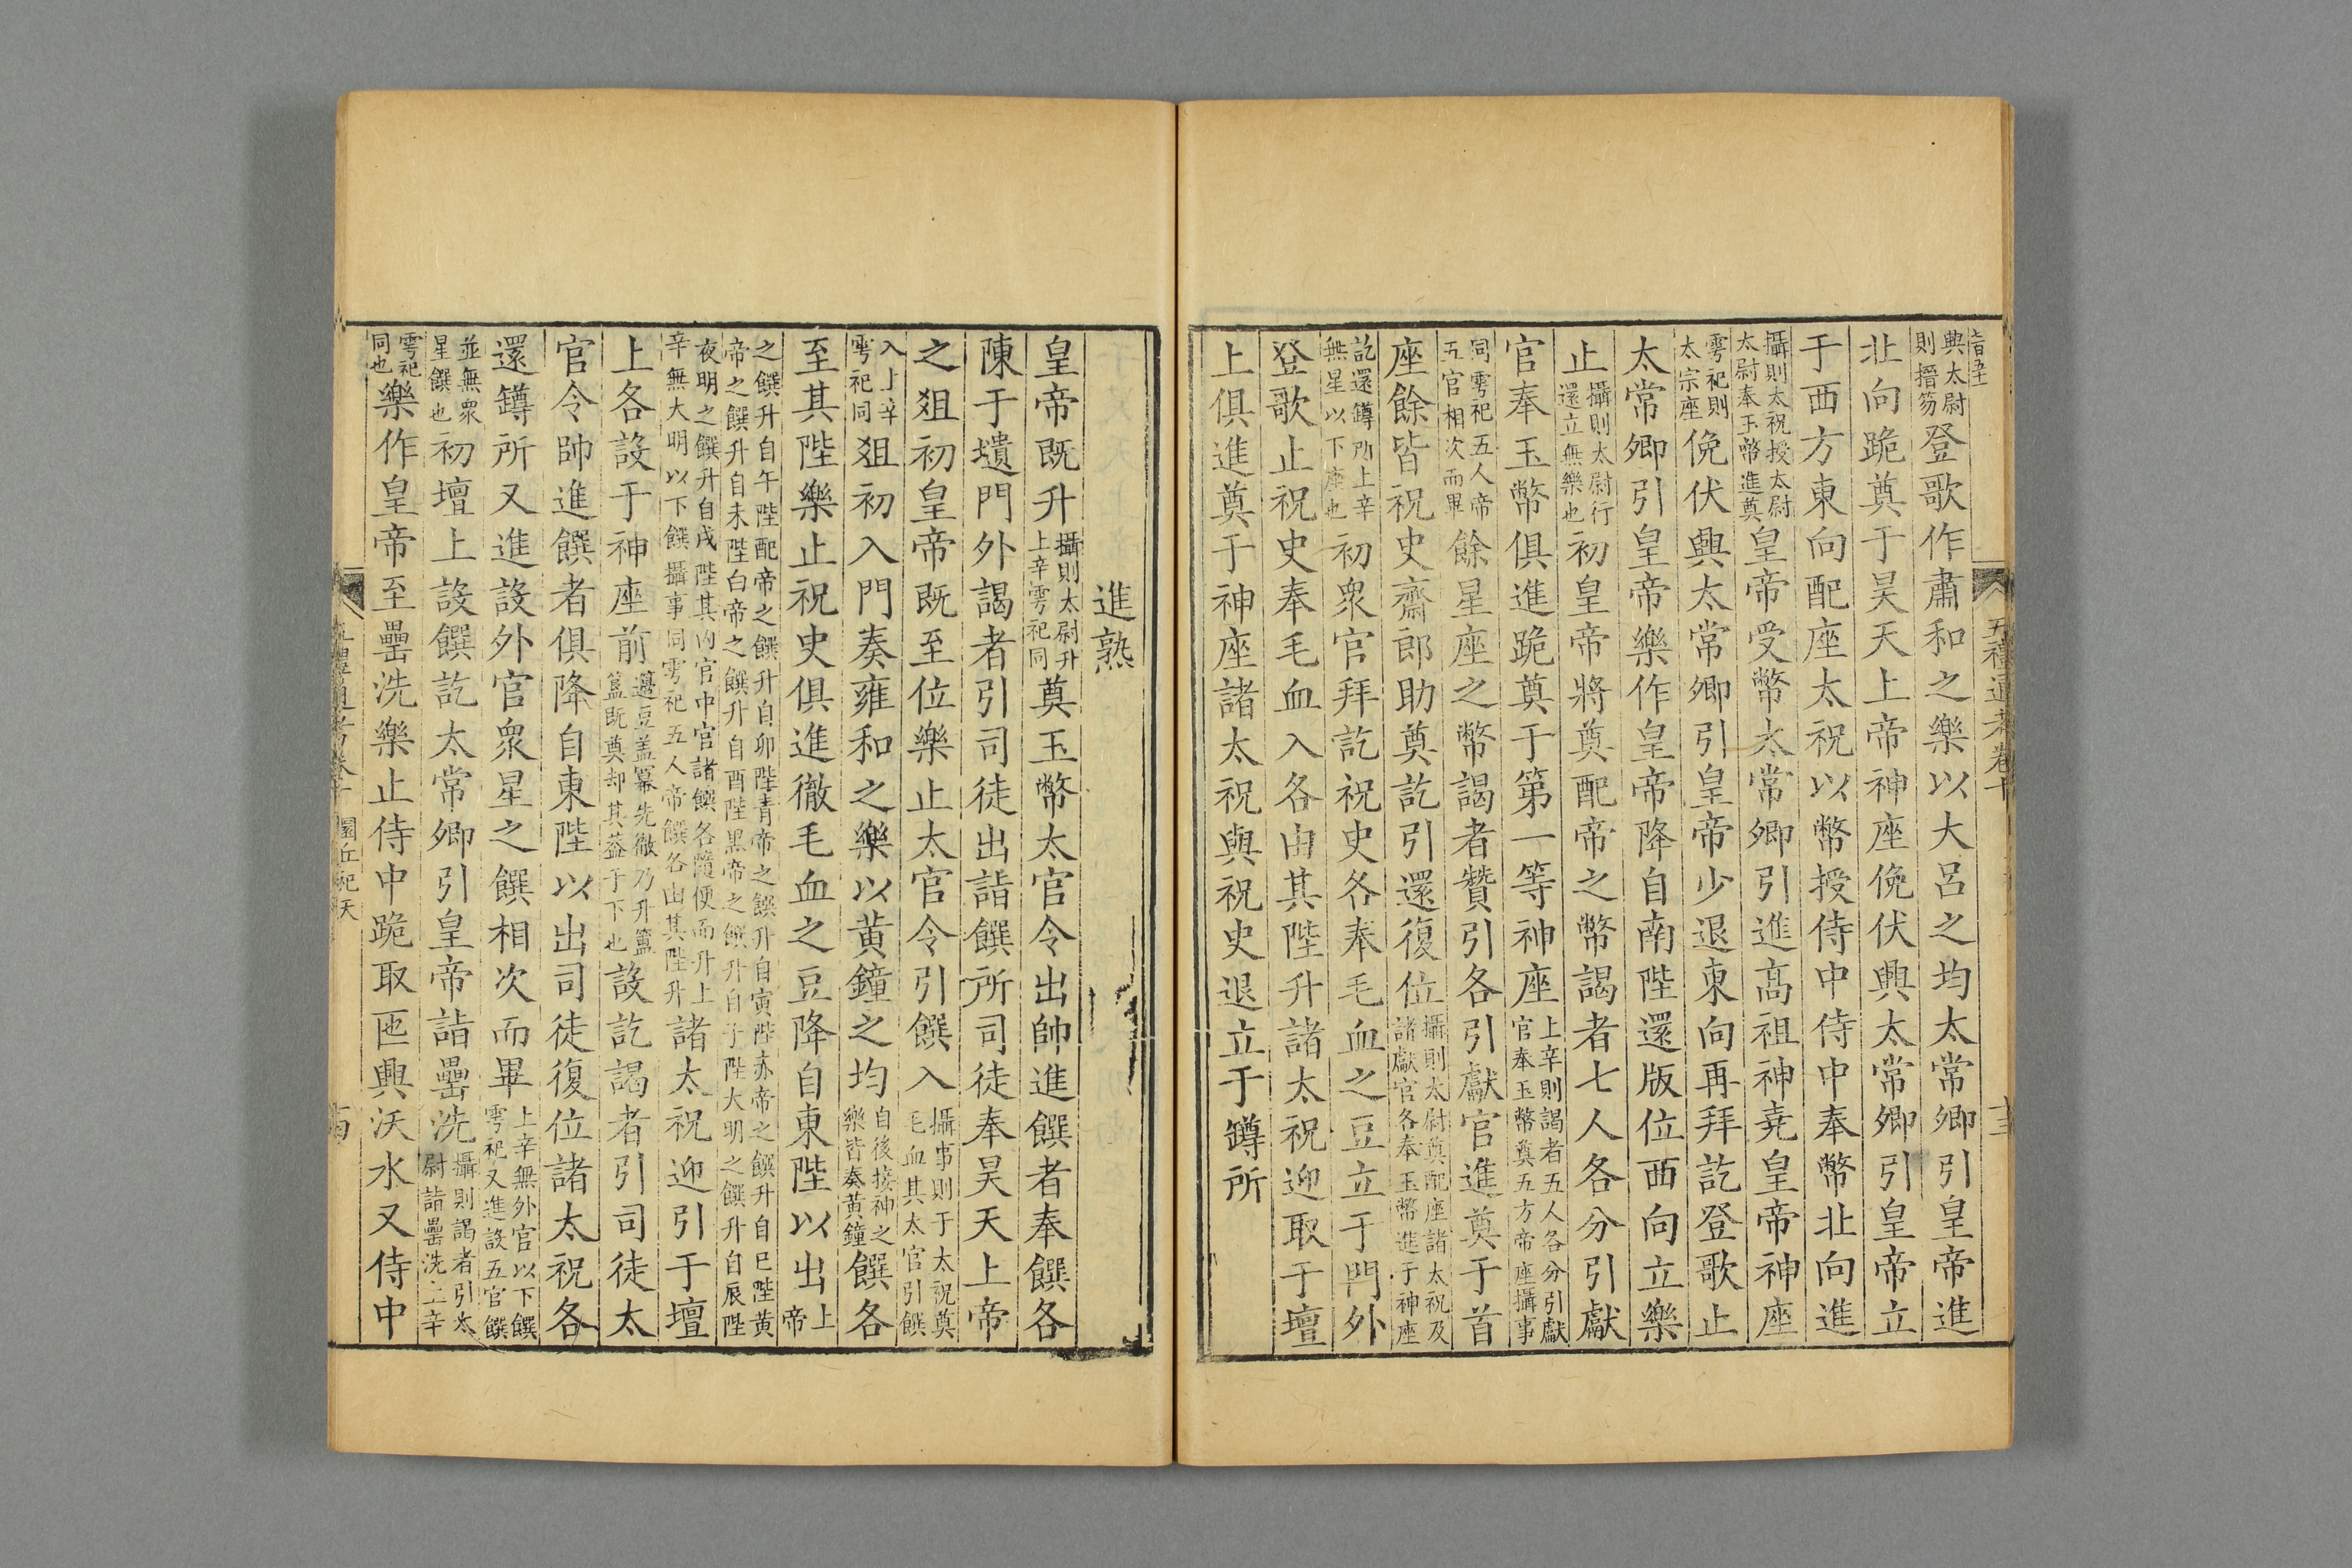 五禮通考卷十
十三
典太尉則搢笏登歌作肅和之樂以大呂之均太常卿引皇帝進
北向跪奠于昊天上帝神座俛伏興太常卿引皇帝立
于西方東向配座太祝以幣授侍中侍中奉幣北向進
攝則太祝授太尉太尉奉玉幣進奠皇帝受幣太常卿引進高祖神堯皇帝神座
雩祀則太宗座俛伏興太常卿引皇帝少退東向再拜訖登歌止
太常卿引皇帝樂作皇帝降自南陛還版位西向立樂
止攝則太尉行還立無樂也初皇帝將奠配帝之幣謁者七人各分引獻
官奉玉幣俱進跪奠于第一等神座上辛則謁者五人各分引獻官奉玉幣奠五方帝座攝事
同雩祀五人帝五官相次而畢餘星座之幣謁者贊引各引獻官進奠于首
座餘皆祝史齋郎助奠訖引還復位攝則太尉奠配座諸太祝及諸獻官各奉玉幣進于神座
訖還罇所上辛無星以下座也初衆官拜訖祝史各奉毛血之豆立于門外
登歌止祝史奉毛血入各由其陛升諸太祝迎取于壇
上俱進奠于神座諸太祝與祝史退立于罇所
進熟
皇帝既升攝則太尉升上辛雩祀同奠玉幣太官令出帥進饌者奉饌各
陳于壝門外謁者引司徒出詣饌所司徒奉昊天上帝
之俎初皇帝既至位樂止太官令引饌入攝事則于太祝奠毛血其太官引饌
入上辛雩祀同俎初入門奏雍和之樂以黄鐘之均自後接神之樂皆奏黃鐘饌各
至其陛樂止祝史俱進徹毛血之豆降自東陛以出上帝
之饌升自午陛配帝之饌升自卯陛青帝之饌升自寅陛赤帝之饌升自巳陛黃帝之饌升自未陛白帝之饌升自酉陛黑帝之饌升自子陛大明之饌升自辰陛
夜明之饌升自戌陛其内官中官諸饌各隨便而升上辛無大明以下饌攝事同雩祀五人帝饌各由其陛升諸太祝迎引于壇
上各設于神座前籩豆盖冪先徹乃升簠簋既奠却其蓋于下也設訖謁者引司徒太
官令帥進饌者俱降自東陛以出司徒復位諸太祝各
還罇所又進設外官衆星之饌相次而畢上辛無外官以下饌雩祀又進設五官饌
並無衆星饌也初壇上設饌訖太常卿引皇帝詣罍洗攝則謁者引太尉詣罍洗上辛
雩祀同也樂作皇帝至罍洗樂止侍中跪取匜興沃水又侍中
五禮通考卷十 圜丘祀天